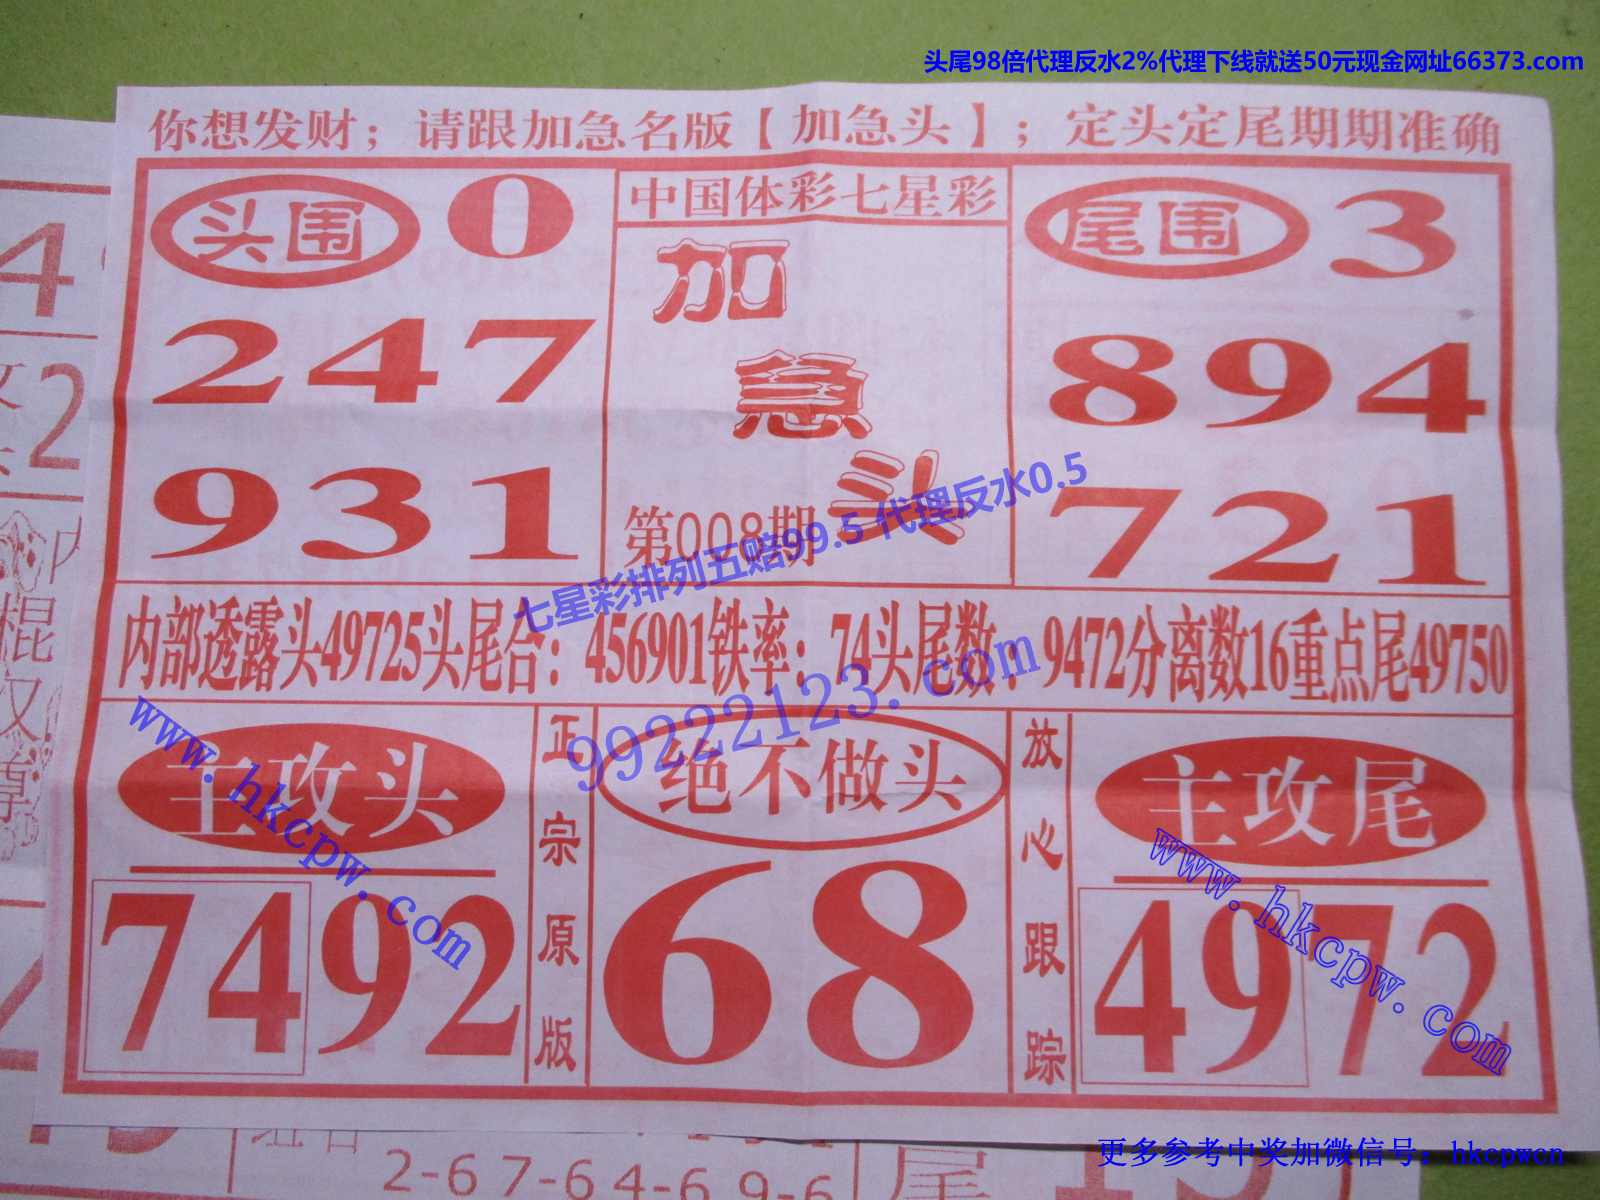 头尾98倍代理反水2%代理下线就送50元现金网址66373.com
你想发财；请跟加急名版【加急头】；定头定尾期期准确
头围 0
247
931
中国体彩七星彩
加急头
第008期
尾围 3
894
721
七星彩排列五赔99.5 代理反水0.5
内部透露头49725头尾合：456901铁率：74头尾数：9472分离数16重点尾49750
99222123.com
www.hkcpw.com
主攻头
7492
正宗原版
绝不做头
68
放心跟踪
主攻尾
4972
www.hkcpw.com
2-6 7-6 4-6 9-6
尾
更多参考中奖加微信号：hkcpwcn